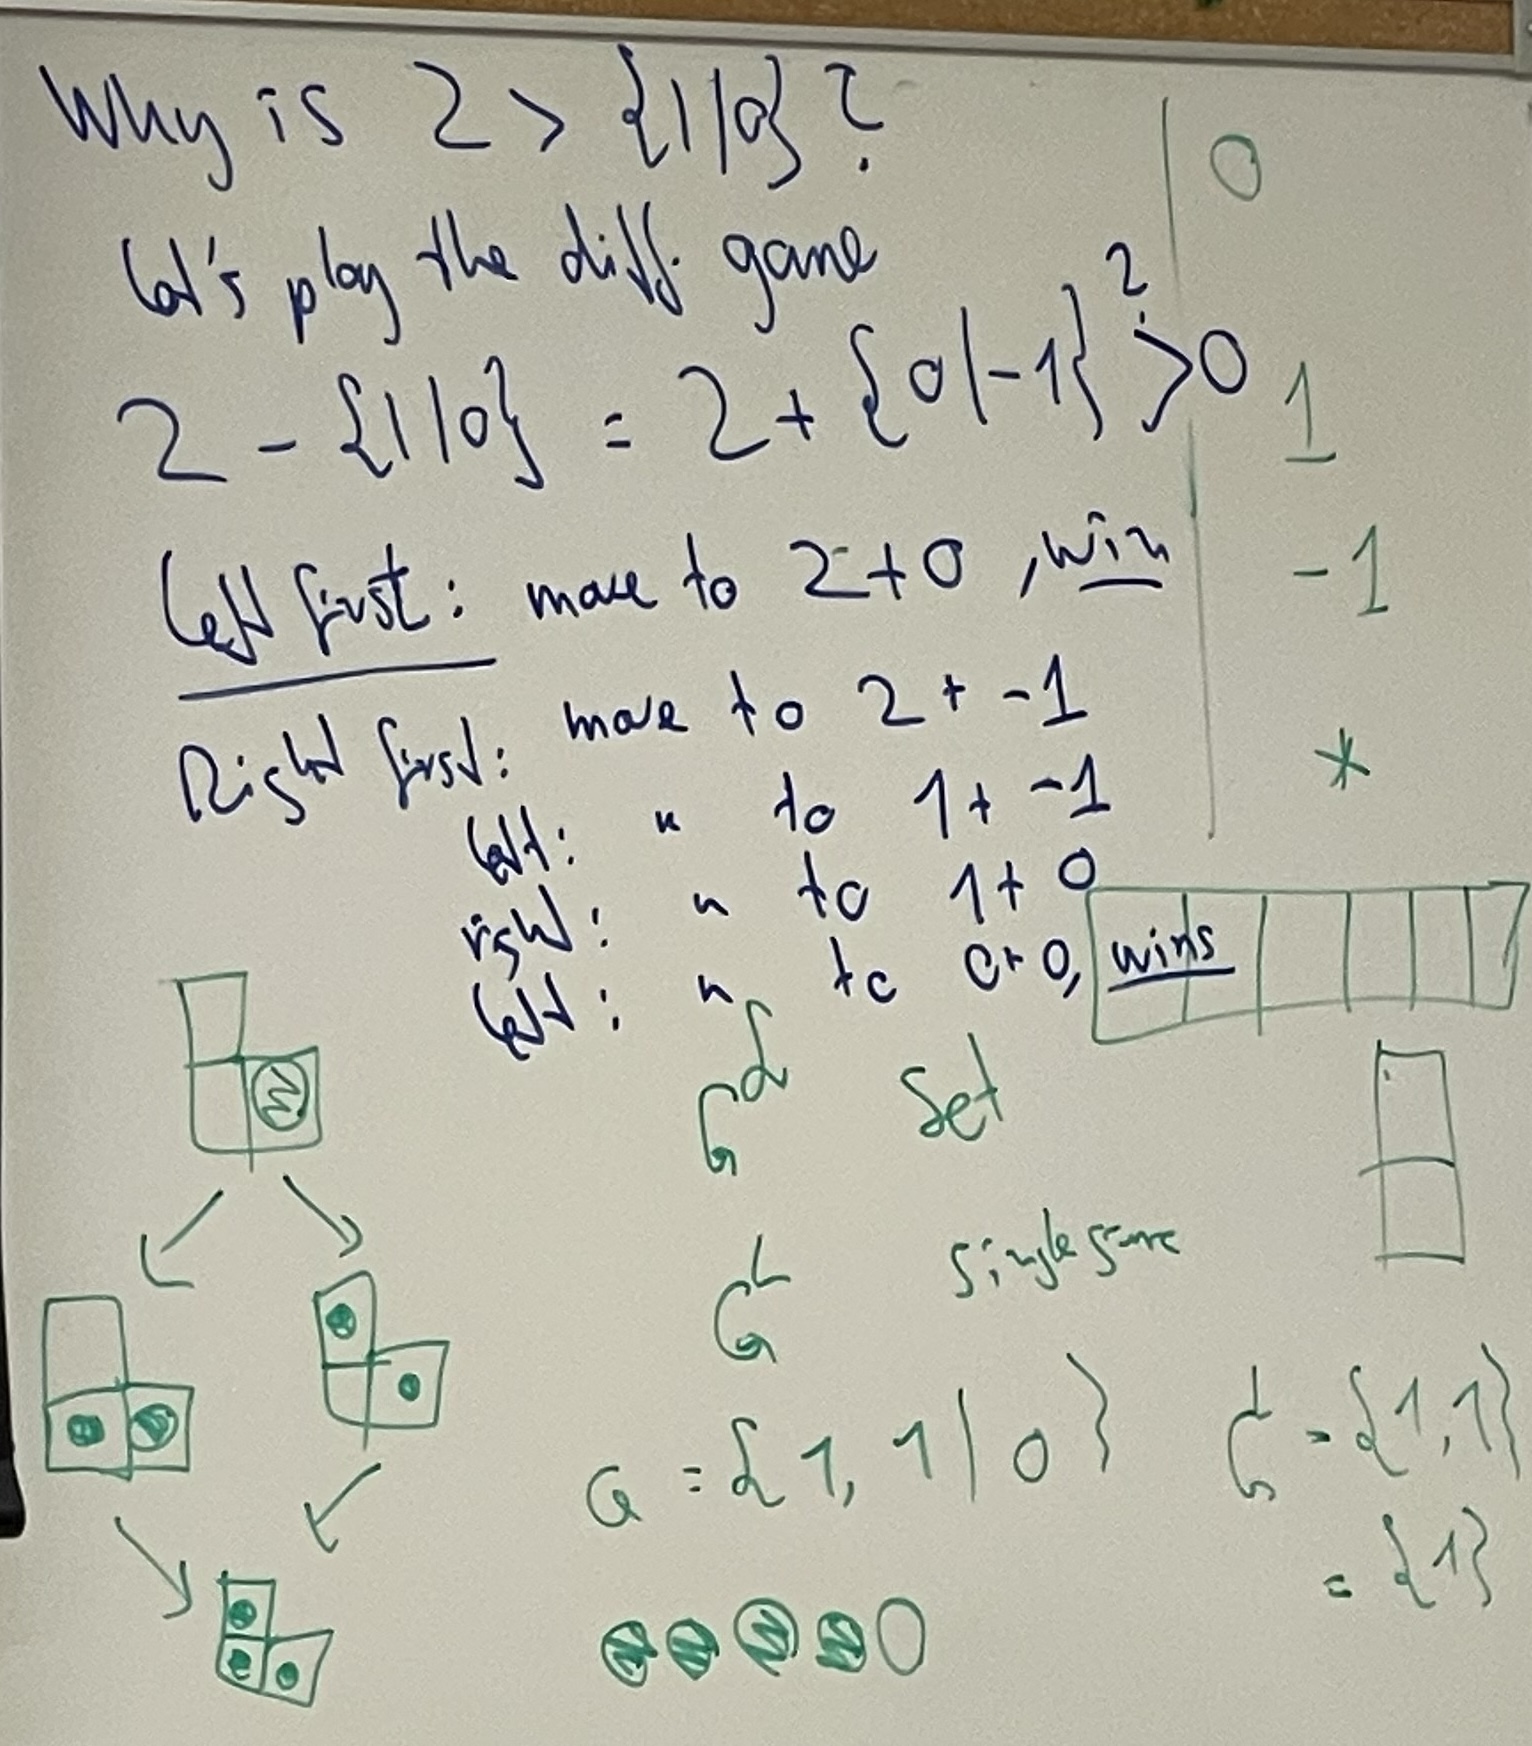 Why is 2 > {1|0} ?
Let's play the diff. game
2 - {1|0} = 2 + {0|-1} ?> 0
Left first: move to 2+0, win
Right first: move to 2 + -1
Left: " to 1 + -1
right: " to 1 + 0
Left: " to 0+0, wins
0
1
-1
*
G^L Set
G^L single game
G = {1, 1 | 0}
G^L = {1,1}
= {1}